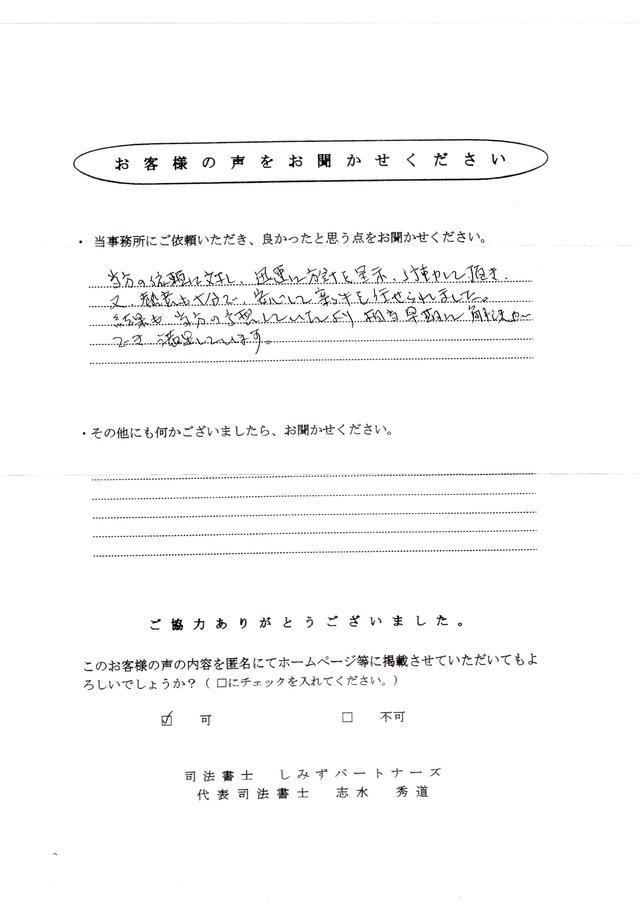 お客様の声をお聞かせください
・当事務所にご依頼いただき、良かったと思う点をお聞かせください。
当方の依頼に対し、迅速に方針を呈示、行動して頂き、
又、熱意も十分で、安心して案件を任せられました。
結果も当方の予想していたより相当早期に解決
でき満足しています。
・その他にも何かございましたら、お聞かせください。
ご協力ありがとうございました。
このお客様の声の内容を匿名にてホームページ等に掲載させていただいてもよ
ろしいでしょうか？（□にチェックを入れてください。）
☑ 可 □ 不可
司法書士 しみずパートナーズ
代表司法書士 志水 秀道